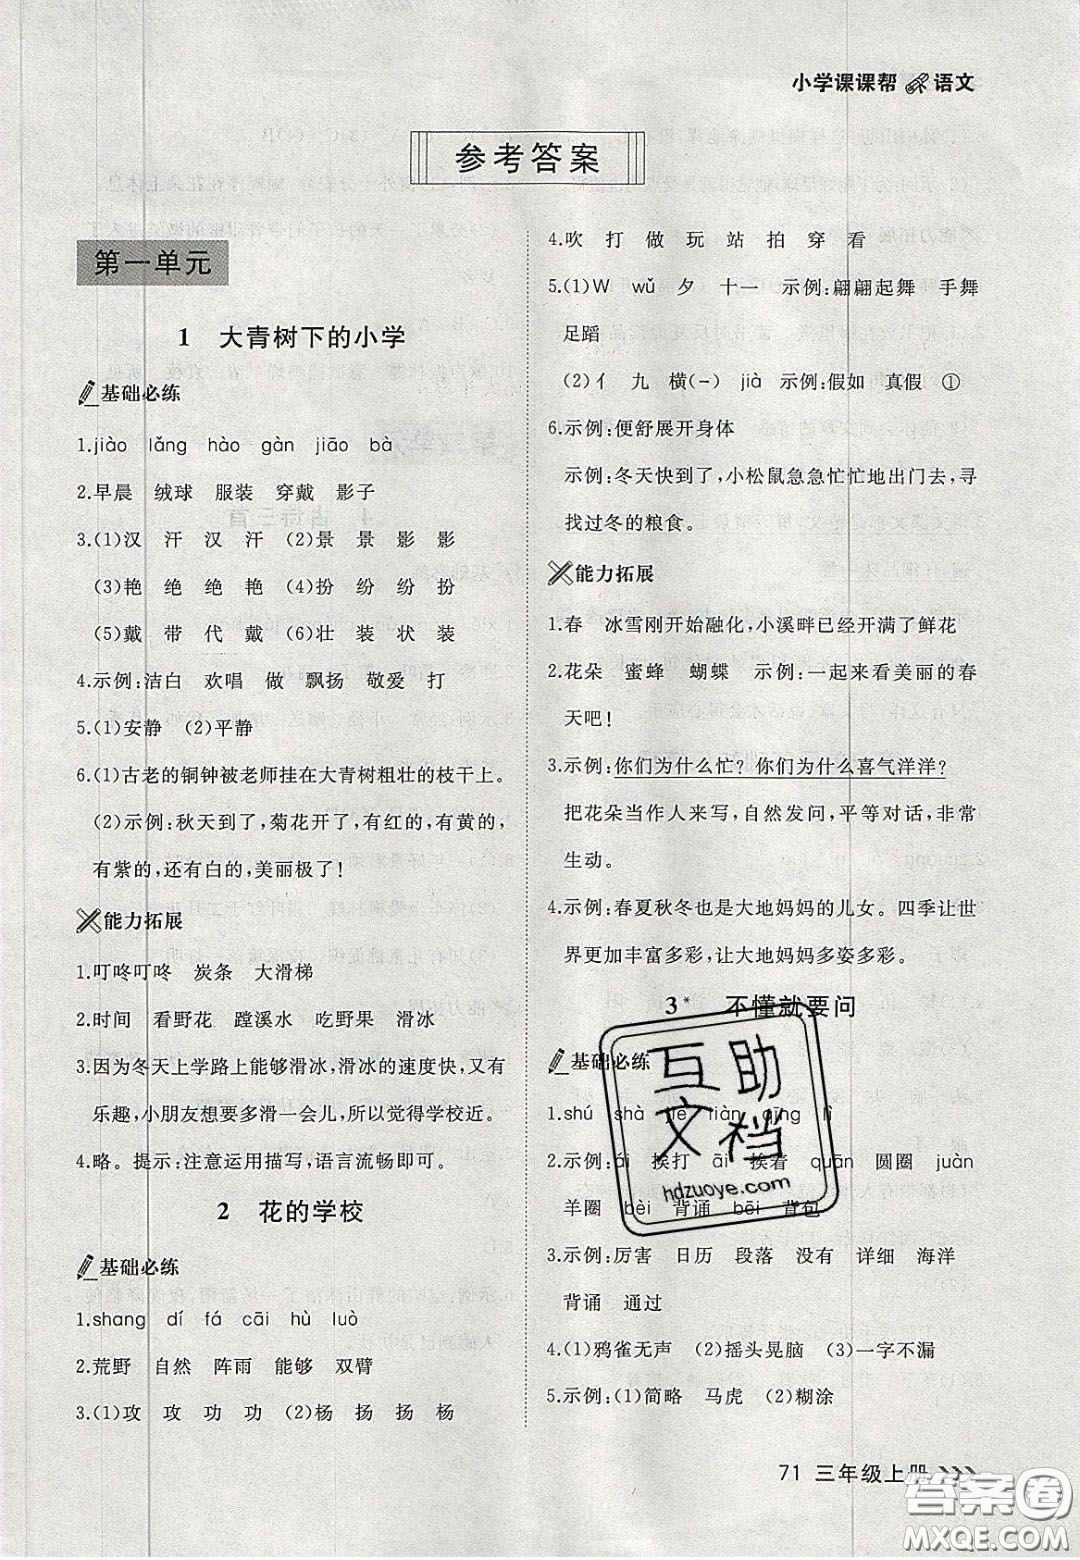 小学课课帮 语文
参考答案
第一单元
1 大青树下的小学
基础必练
1.jiào lǎng hào gàn jiāo bà
2.早晨 绒球 服装 穿戴 影子
3.(1)汉 汗 汉 汗 (2)景 景 影 影
(3)艳 绝 绝 艳 (4)扮 纷 纷 扮
(5)戴 带 代 戴 (6)壮 装 状 装
4.示例:洁白 欢唱 做 飘扬 敬爱 打
5.(1)安静 (2)平静
6.(1)古老的铜钟被老师挂在大青树粗壮的枝干上。
(2)示例:秋天到了,菊花开了,有红的,有黄的,
有紫的,还有白的,美丽极了!
能力拓展
1.叮咚叮咚 炭条 大滑梯
2.时间 看野花 蹚溪水 吃野果 滑冰
3.因为冬天上学路上能够滑冰,滑冰的速度快,又有
乐趣,小朋友想要多滑一会儿,所以觉得学校近。
4.略。提示:注意运用描写,语言流畅即可。
2 花的学校
基础必练
1.shang dí fá cāi hù luò
2.荒野 自然 阵雨 能够 双臂
3.(1)攻 攻 功 功 (2)杨 扬 扬 杨
4.吹 打 做 玩 站 拍 穿 看
5.(1)W wǔ 夕 十一 示例:翩翩起舞 手舞
足蹈
(2)亻 九 横(一) jià 示例:假如 真假 ①
6.示例:便舒展开身体
示例:冬天快到了,小松鼠急急忙忙地出门去,寻
找过冬的粮食。
能力拓展
1.春 冰雪刚开始融化,小溪畔已经开满了鲜花
2.花朵 蜜蜂 蝴蝶 示例:一起来看美丽的春
天吧!
3.示例:你们为什么忙? 你们为什么喜气洋洋?
把花朵当作人来写,自然发问,平等对话,非常
生动。
4.示例:春夏秋冬也是大地妈妈的儿女。四季让世
界更加丰富多彩,让大地妈妈多姿多彩。
3* 不懂就要问
基础必练
1.shú shà lì tiàn qīng lì
2.示例:ái 挨打 āi 挨着 quān 圆圈 juàn
羊圈 bèi 背诵 bēi 背包
3.示例:厉害 日历 段落 没有 详细 海洋
背诵 通过
4.(1)鸦雀无声 (2)摇头晃脑 (3)一字不漏
5.示例:(1)简略 马虎 (2)糊涂
互助
文档
hdzuoye.com
71 三年级上册
答案圈
MXQE.COM